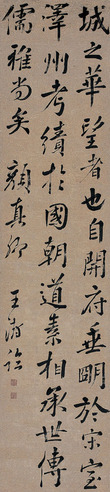 城之華望者也自開府垂明於宋室
澤州考績於國朝道素相承世傳
儒雅尚矣 顏真卿 王澍臨